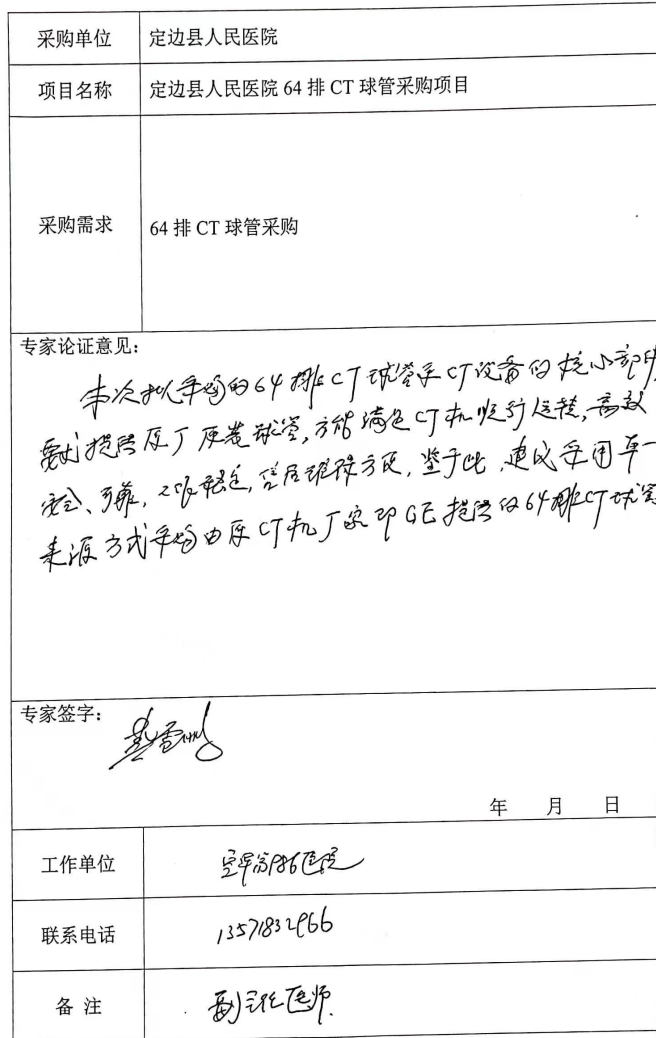 采购单位 定边县人民医院
项目名称 定边县人民医院 64 排 CT 球管采购项目
采购需求 64 排 CT 球管采购
专家论证意见:
本次拟采购的64排CT球管系CT设备的核心部件
要求提供原厂原装球管,方能满足CT机顺行运转,高效
安全、可靠,稳定,售后维保方便,鉴于此,建议采用单一
来源方式采购由原CT机厂家即GE提供的64排CT球管
专家签字:
年 月 日
工作单位 空军986医院
联系电话
备 注 副主任医师.